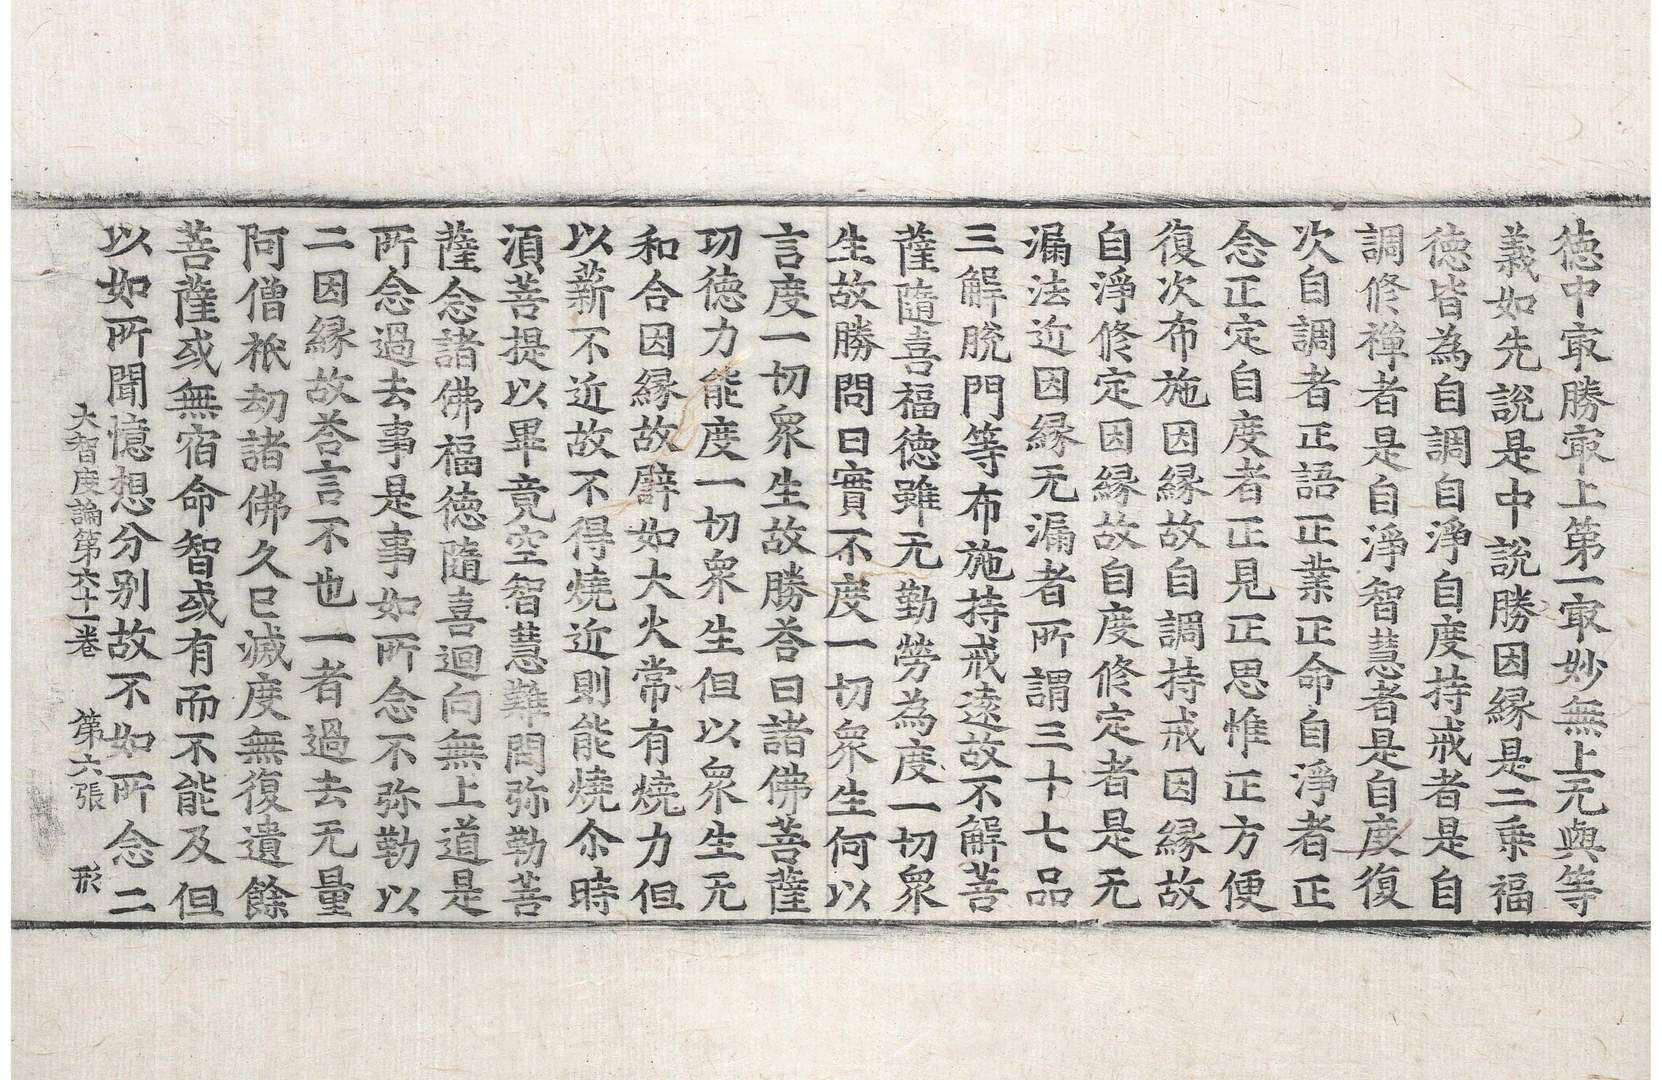 德中㝡勝㝡上第一㝡妙無上无與等
義如先說是中說勝因縁是二乘福
德皆為自調自淨自度持戒者是自
調修禪者是自淨智慧者是自度復
次自調者正語正業正命自淨者正
念正定自度者正見正思惟正方便
復次布施因縁故自調持戒因縁故
自淨修定因縁故自度修定者是无
漏法近因縁无漏者所謂三十七品
三解脫門等布施持戒遠故不解菩
薩隨喜福德雖无勤勞為度一切衆
生故勝問曰實不度一切衆生何以
言度一切衆生故勝荅曰諸佛菩薩
功德力能度一切衆生但以衆生无
和合因縁故譬如大火常有燒力但
以薪不近故不得燒近則能燒尒時
湏菩提以畢竟空智慧難問弥勒菩
薩念諸佛福德隨喜迴向無上道是
所念過去事是事如所念不弥勒以
二因縁故荅言不也一者過去无量
阿僧祇劫諸佛久已滅度無復遺餘
菩薩或無宿命智或有而不能及但
以如所聞憶想分别故不如所念二
大智度論第六十一卷 第六張 形